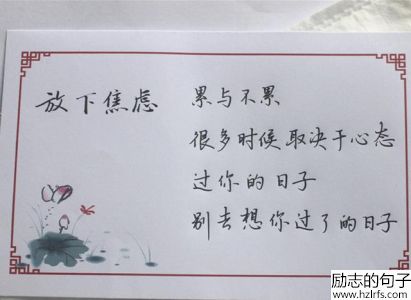 放下焦虑
累与不累
很多时候取决于心态
过你的日子
别去想你过了的日子
励志的句子
www.hzlrfs.com